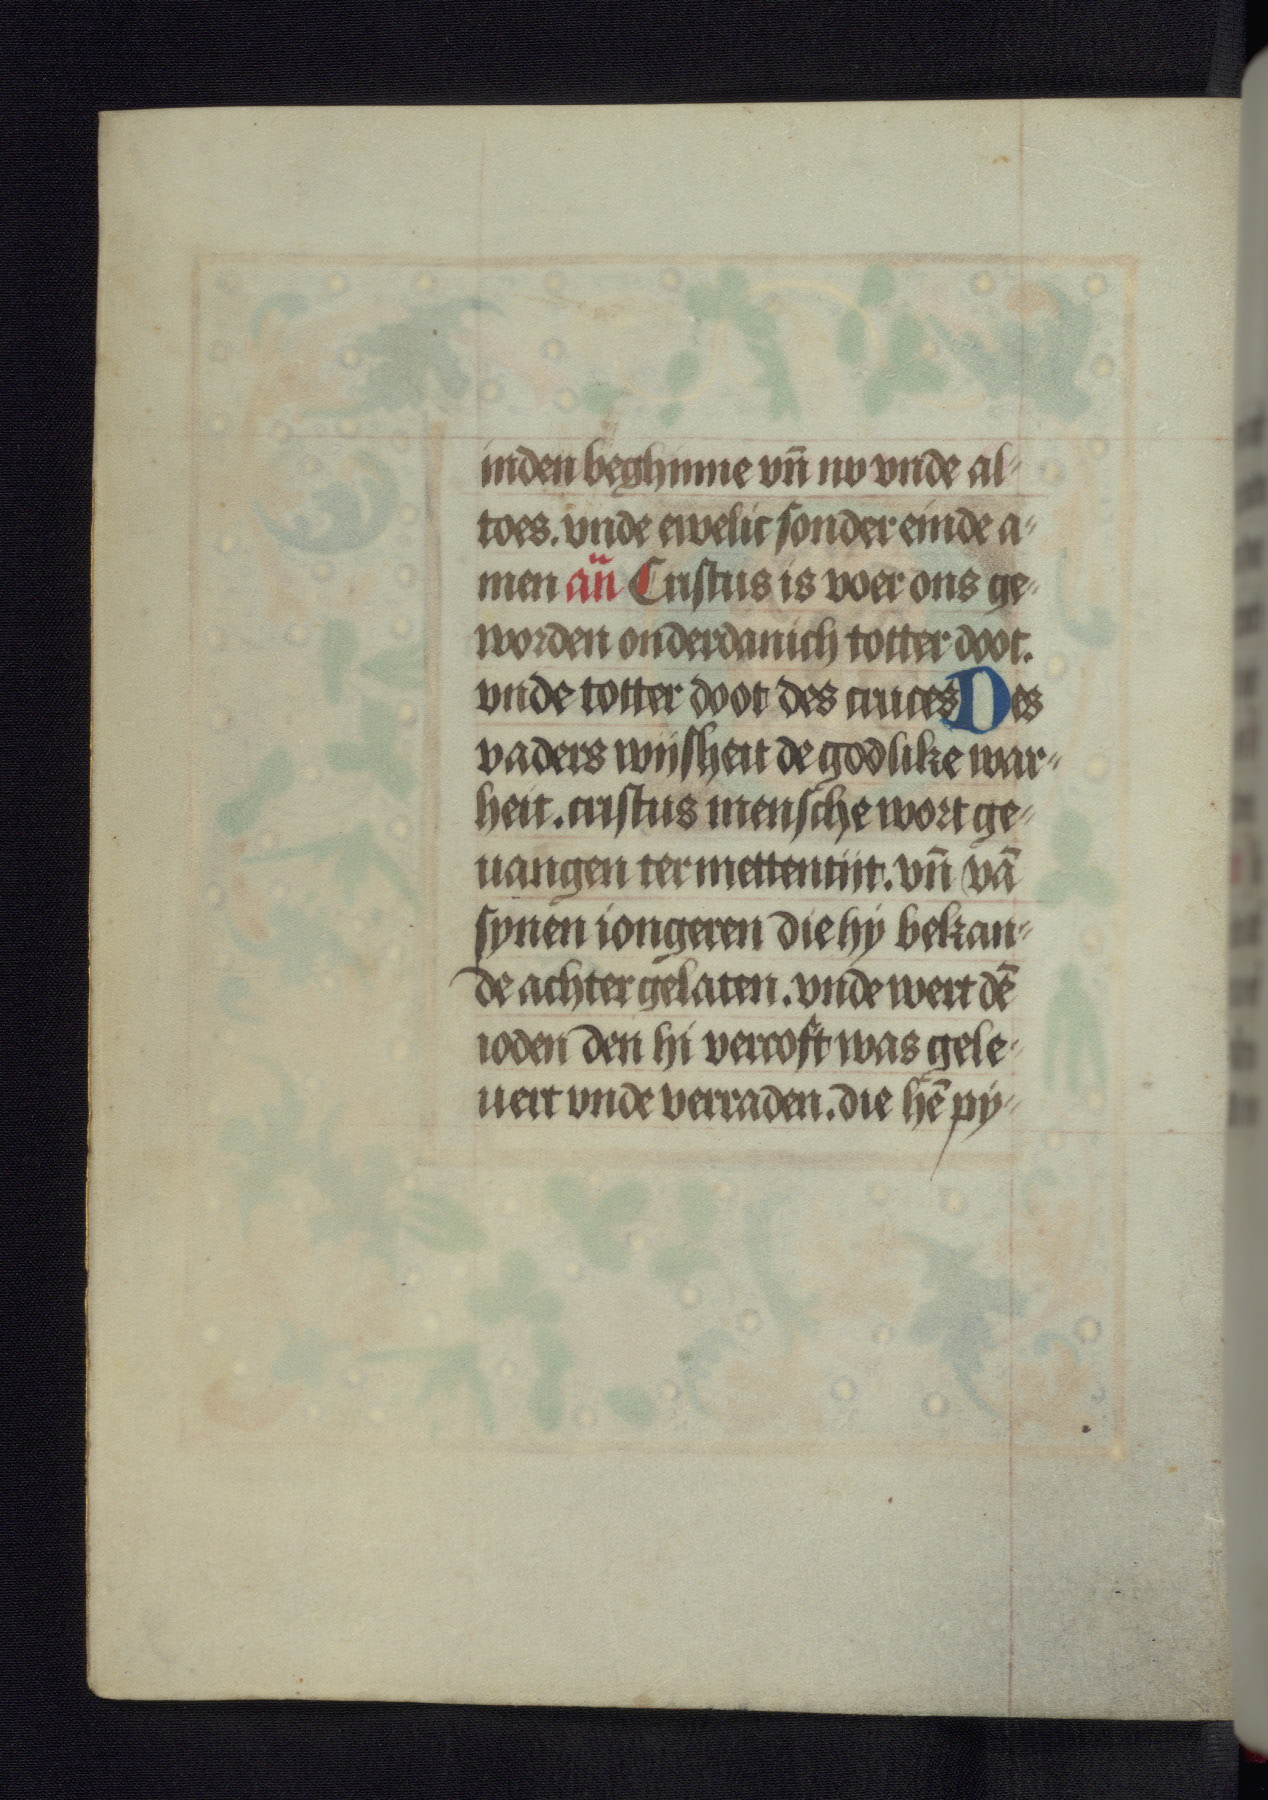 inden beghinne vn̄ nv vnde al-
toes. vnde ewelic sonder einde a-
men an̄ Cristus is voer ons ge-
worden onderdanich totter doot.
vnde totter doot des cruces Des
vaders wijsheit de godlike war-
heit. cristus mensche wort ge-
uangen ter mettentijt. vn̄ vā
synen iongeren die hy bekan-
de achter gelaten. vnde wert dē
ioden den hi vercoft was gele-
uert vnde verraden. die hē py-